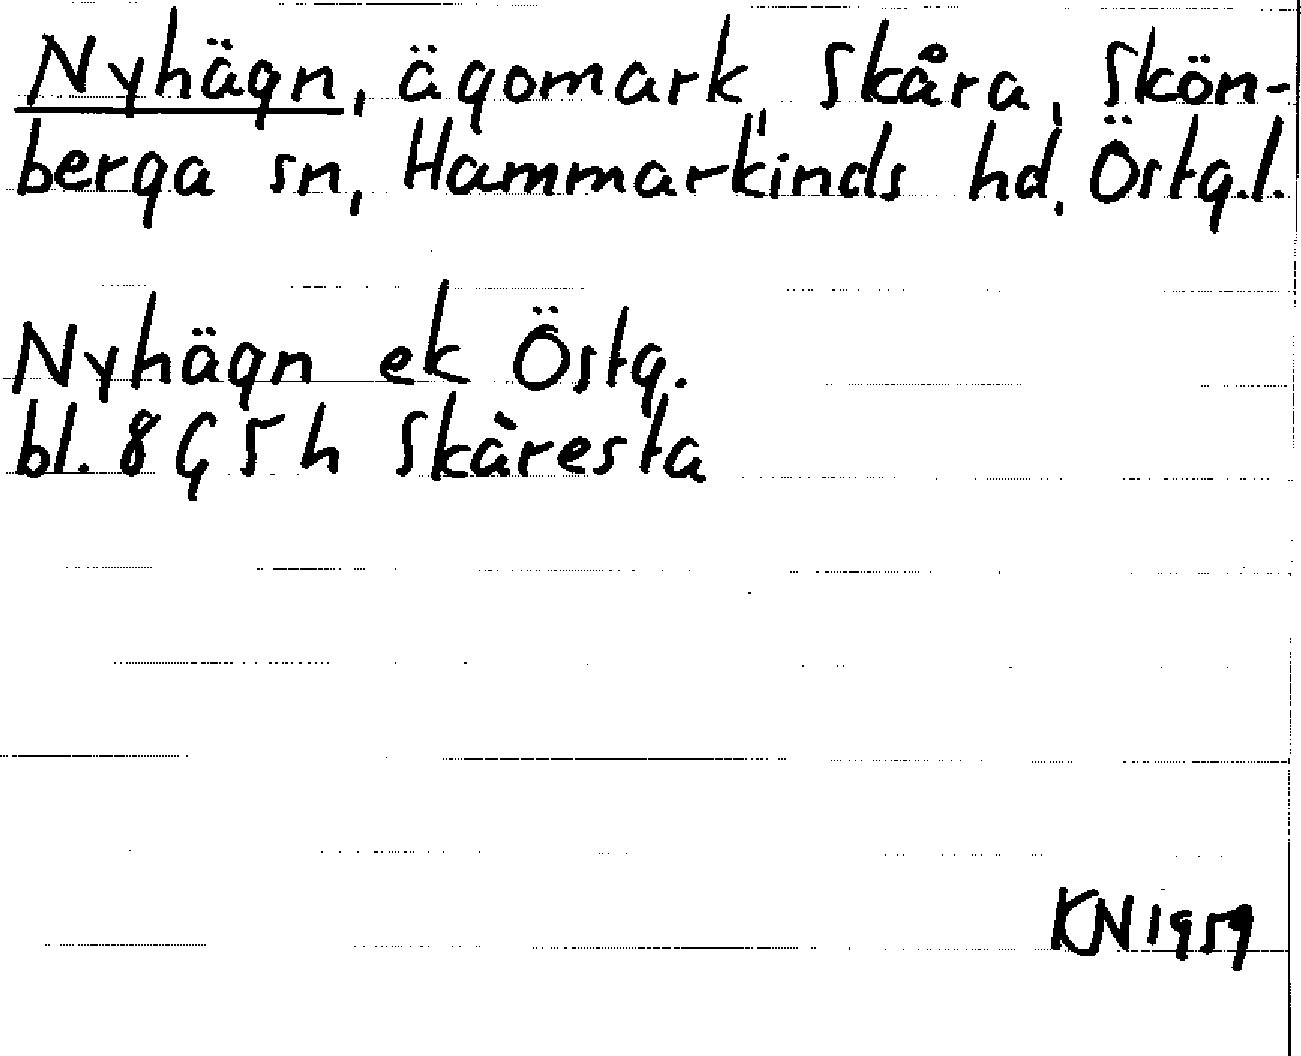 Nyhägn, ägomark, Skåra, Skön-
berga sn, Hammarkinds hd, Östg.l.
Nyhägn ek Östg.
bl. 8G5h Skåresta
KN 1959